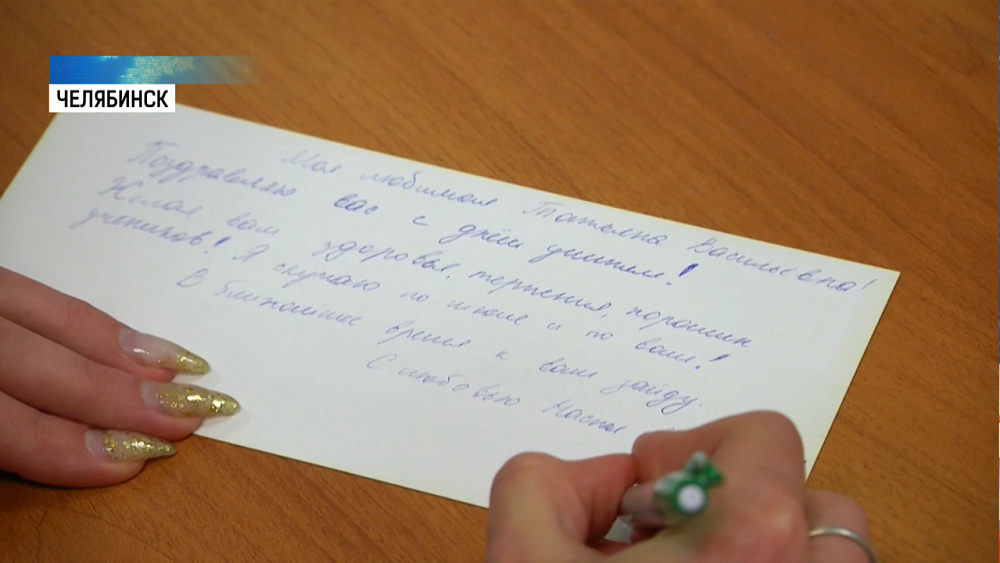 ЧЕЛЯБИНСК
Моя любимая Татьяна Васильевна!
Поздравляю вас с днём учителя!
Желаю вам здоровья, терпения, хороших
учеников! Я скучаю по школе и по вам!
В ближайшие время к вам зайду...
С любовью Настя